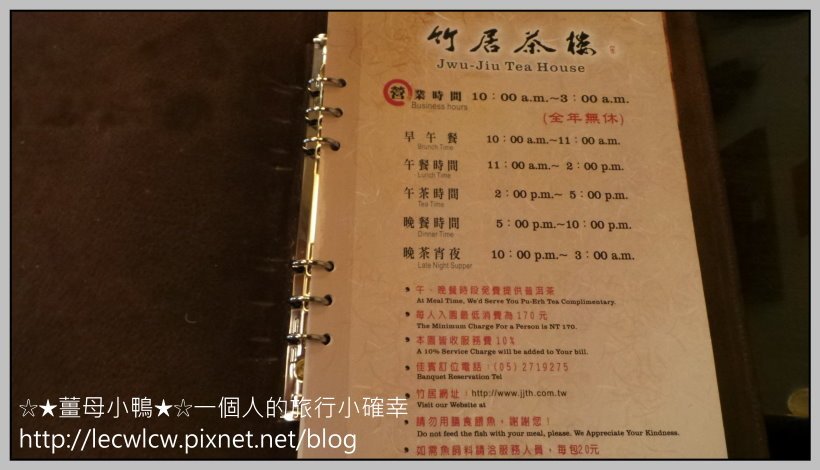 竹居茶樓
Jwu-Jiu Tea House
營業時間 10:00 a.m.~3:00 a.m.
Business hours
(全年無休)
早午餐 10:00 a.m.~11:00 a.m.
Brunch Time
午餐時間 11:00 a.m.~ 2:00 p.m.
Lunch Time
午茶時間 2:00 p.m.~ 5:00 p.m.
Tea Time
晚餐時間 5:00 p.m.~10:00 p.m.
Dinner Time
晚茶宵夜 10:00 p.m.~ 3:00 a.m.
Late Night Supper
• 午、晚餐時段免費提供普洱茶
At Meal Time, We'd Serve You Pu-Erh Tea Complimentary.
• 每人入園最低消費為170元
The Minimum Charge For a Person is NT 170.
• 本園皆收服務費10%
A 10% Service Charge will be added to Your bill.
• 佳賓訂位電話:(05)2719275
Banquet Reservation Tel
• 竹居網址:http://www.jjth.com.tw
Visit our Website at
• 請勿用膳食餵魚,謝謝您!
Do not feed the fish with your meal, please. We Appreciate Your Kindness.
• 如需魚飼料請洽服務人員,每包20元
☆★薑母小鴨★☆一個人的旅行小確幸
http://lecwlcw.pixnet.net/blog